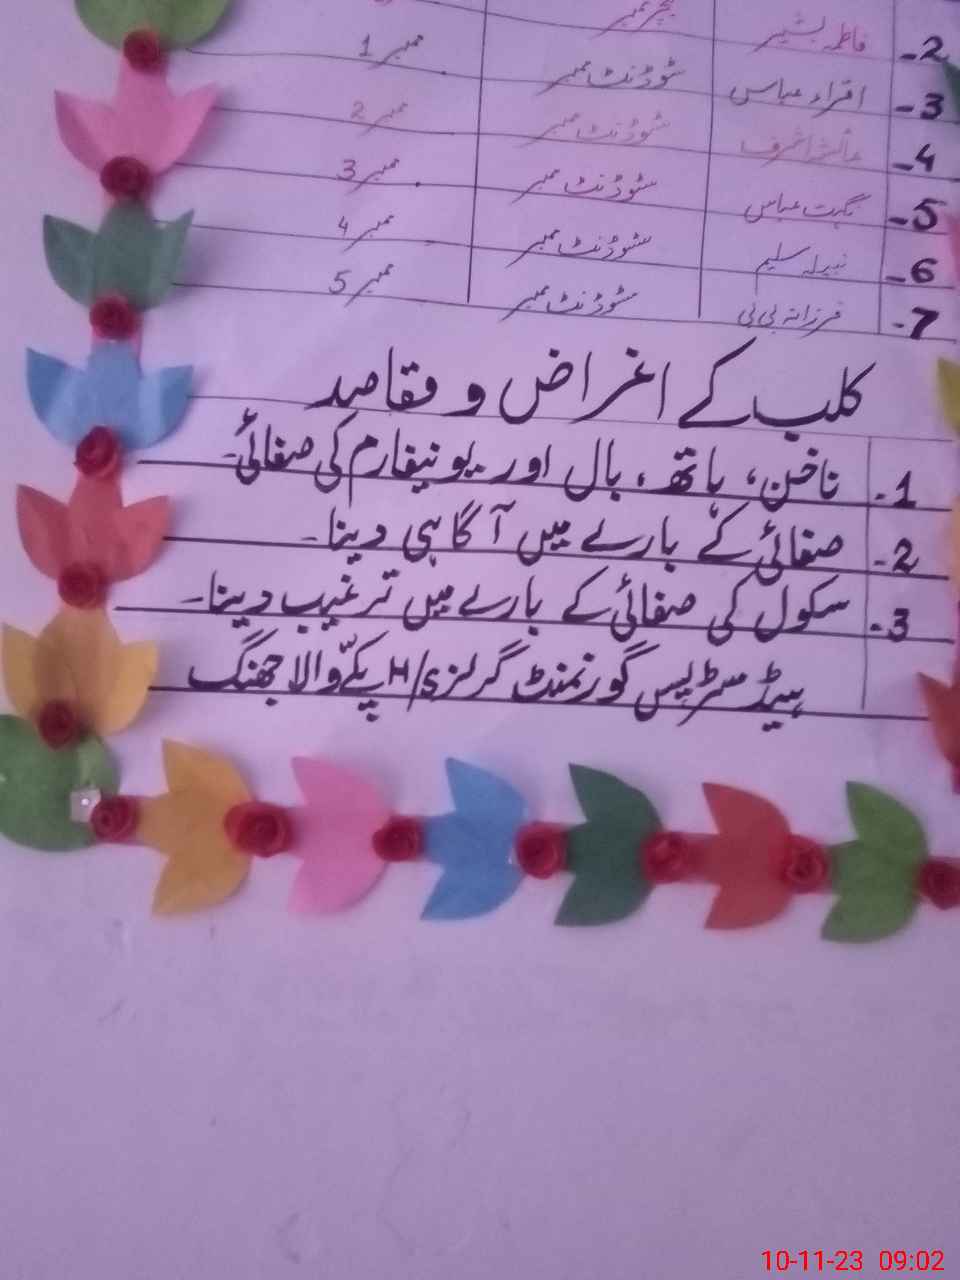 2- فاطمہ بشیر ٹیچر ممبر
3- اقراء عباس سٹوڈنٹ ممبر ممبر 1
4- عائشہ اشرف سٹوڈنٹ ممبر ممبر 2
5- نگہت عباس سٹوڈنٹ ممبر ممبر 3
6- نبیلہ سلیم سٹوڈنٹ ممبر ممبر 4
7- فرزانہ بی بی سٹوڈنٹ ممبر ممبر 5
کلب کے اغراض و مقاصد
1- ناخن، ہاتھ، بال اور یونیفارم کی صفائی۔
2- صفائی کے بارے میں آگاہی دینا۔
3- سکول کی صفائی کے بارے میں ترغیب دینا۔
ہیڈ مسٹریس گورنمنٹ گرلز H/S پکے والا جھنگ
10-11-23 09:02